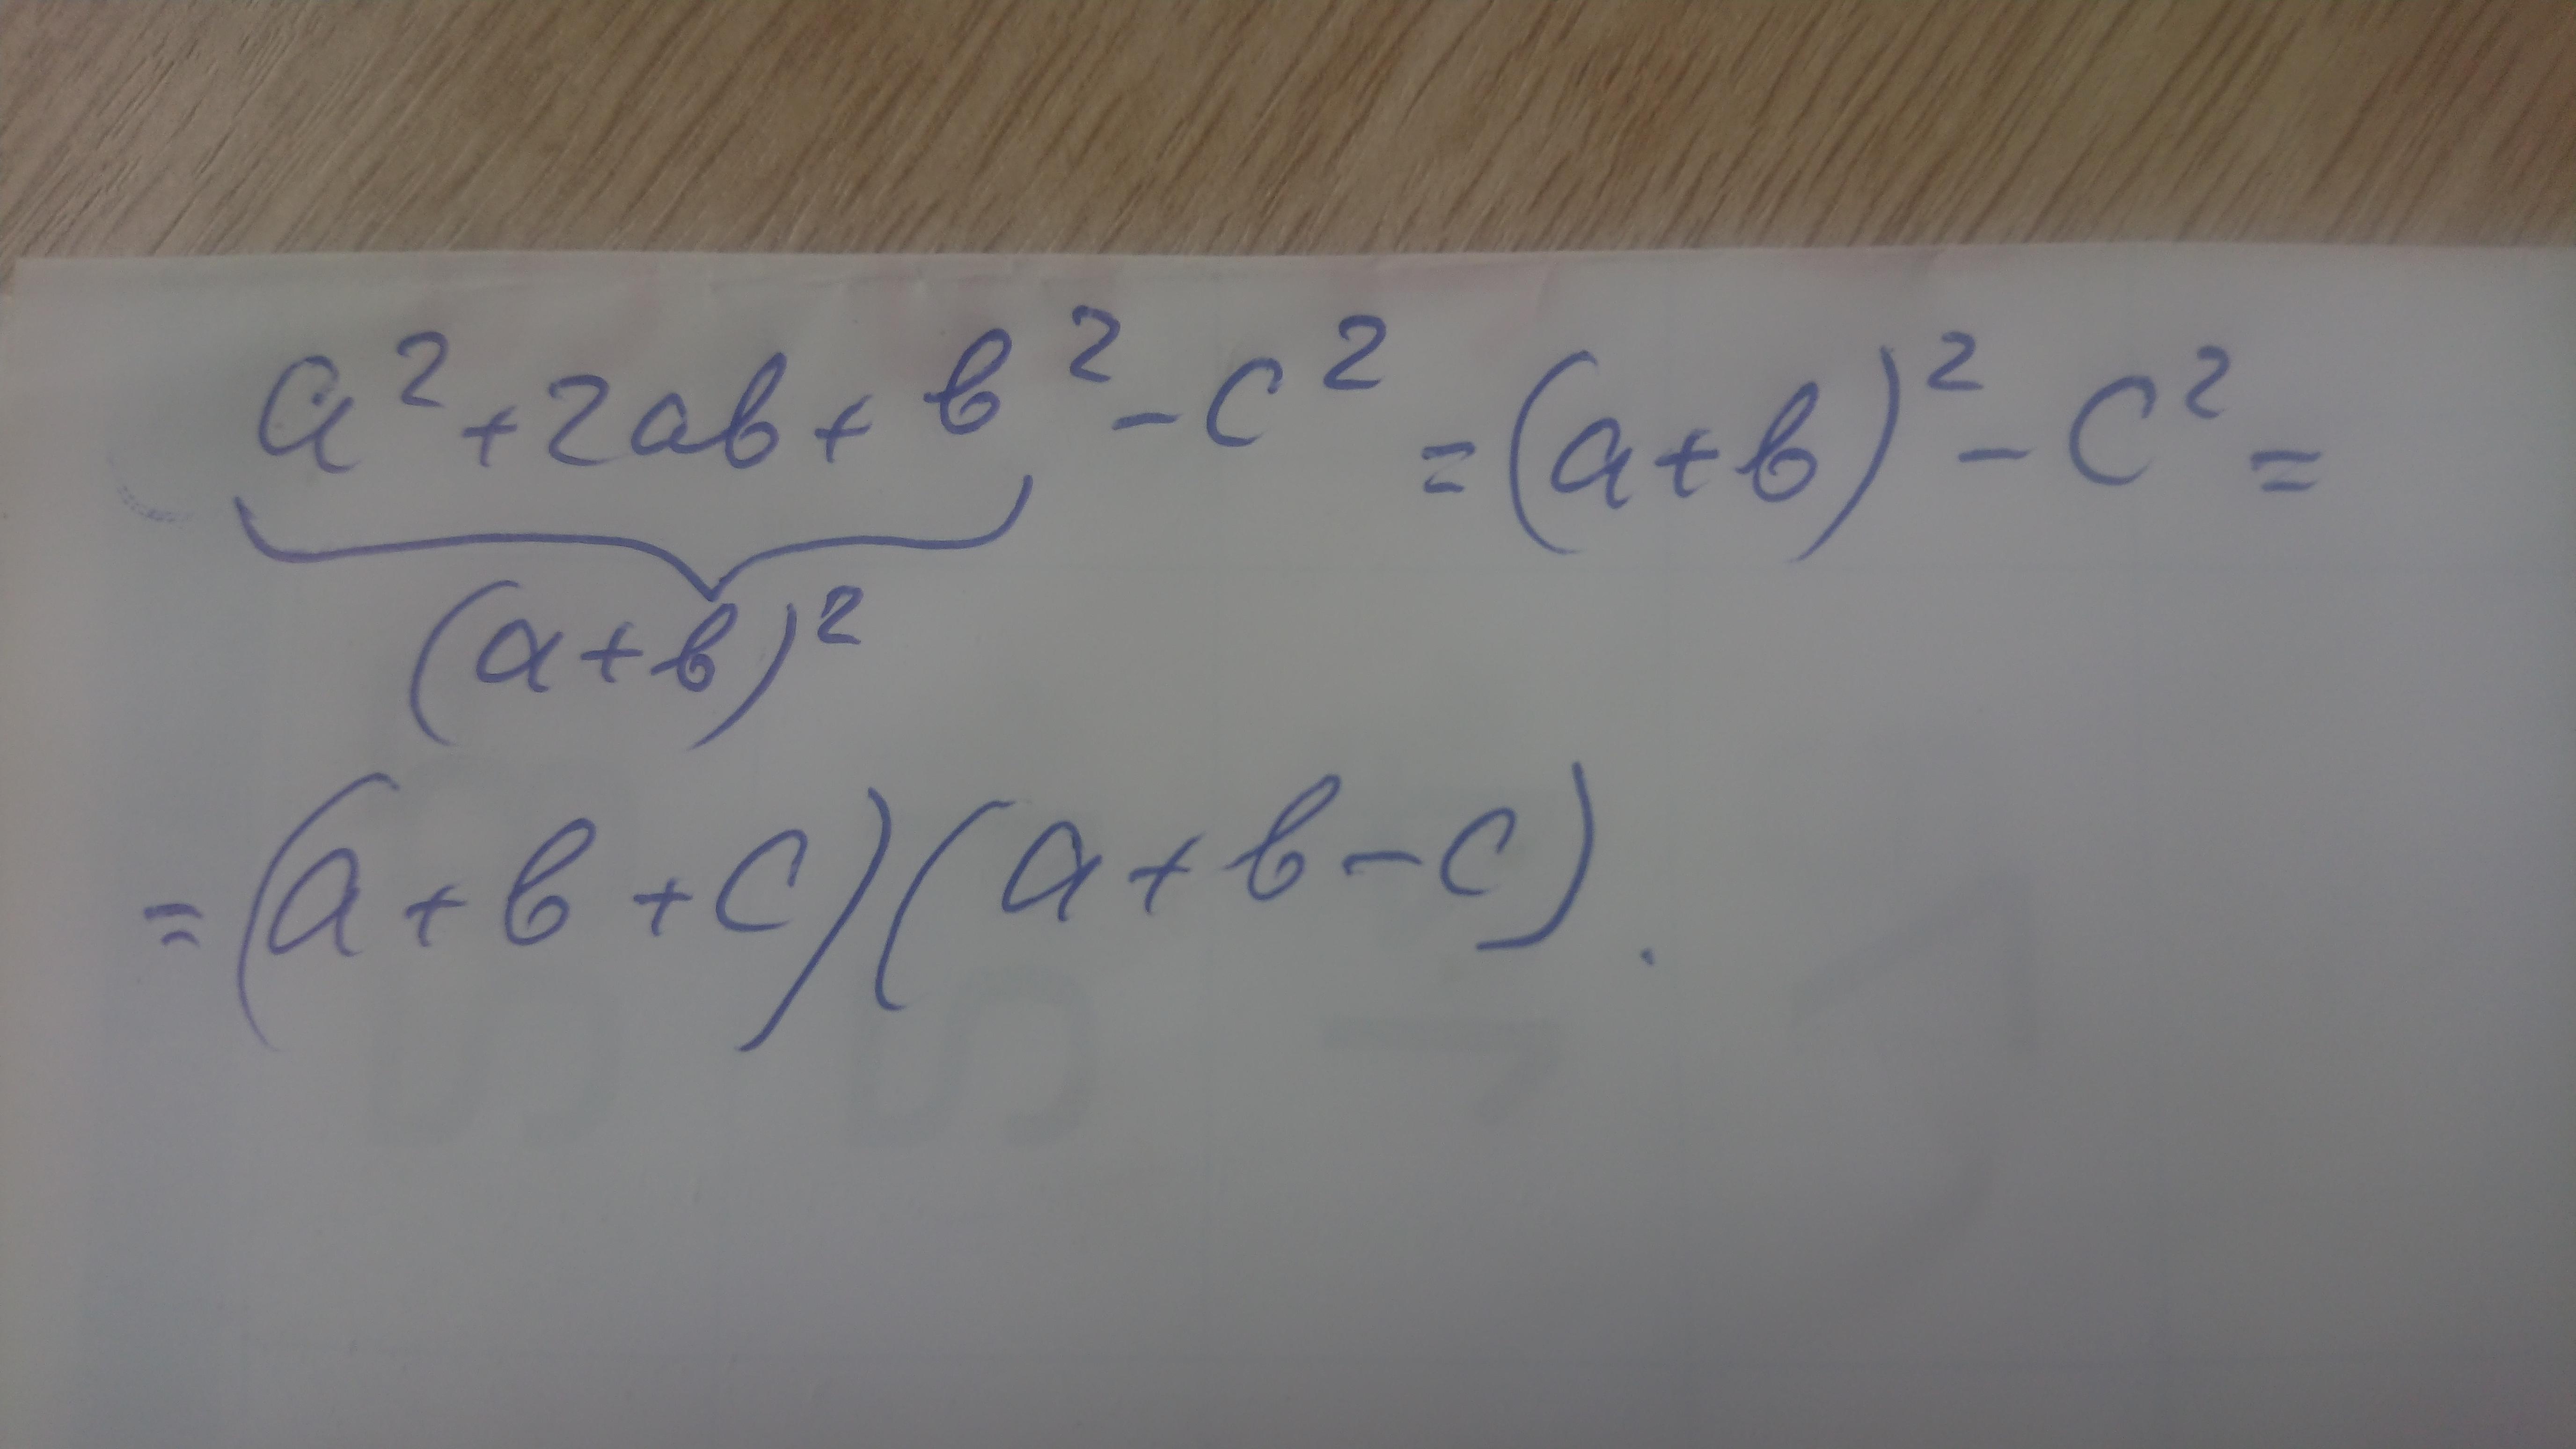 a² + 2ab + b² - c² = (a+b)² - c² =
(a+b)²
= (a+b+c)(a+b-c).